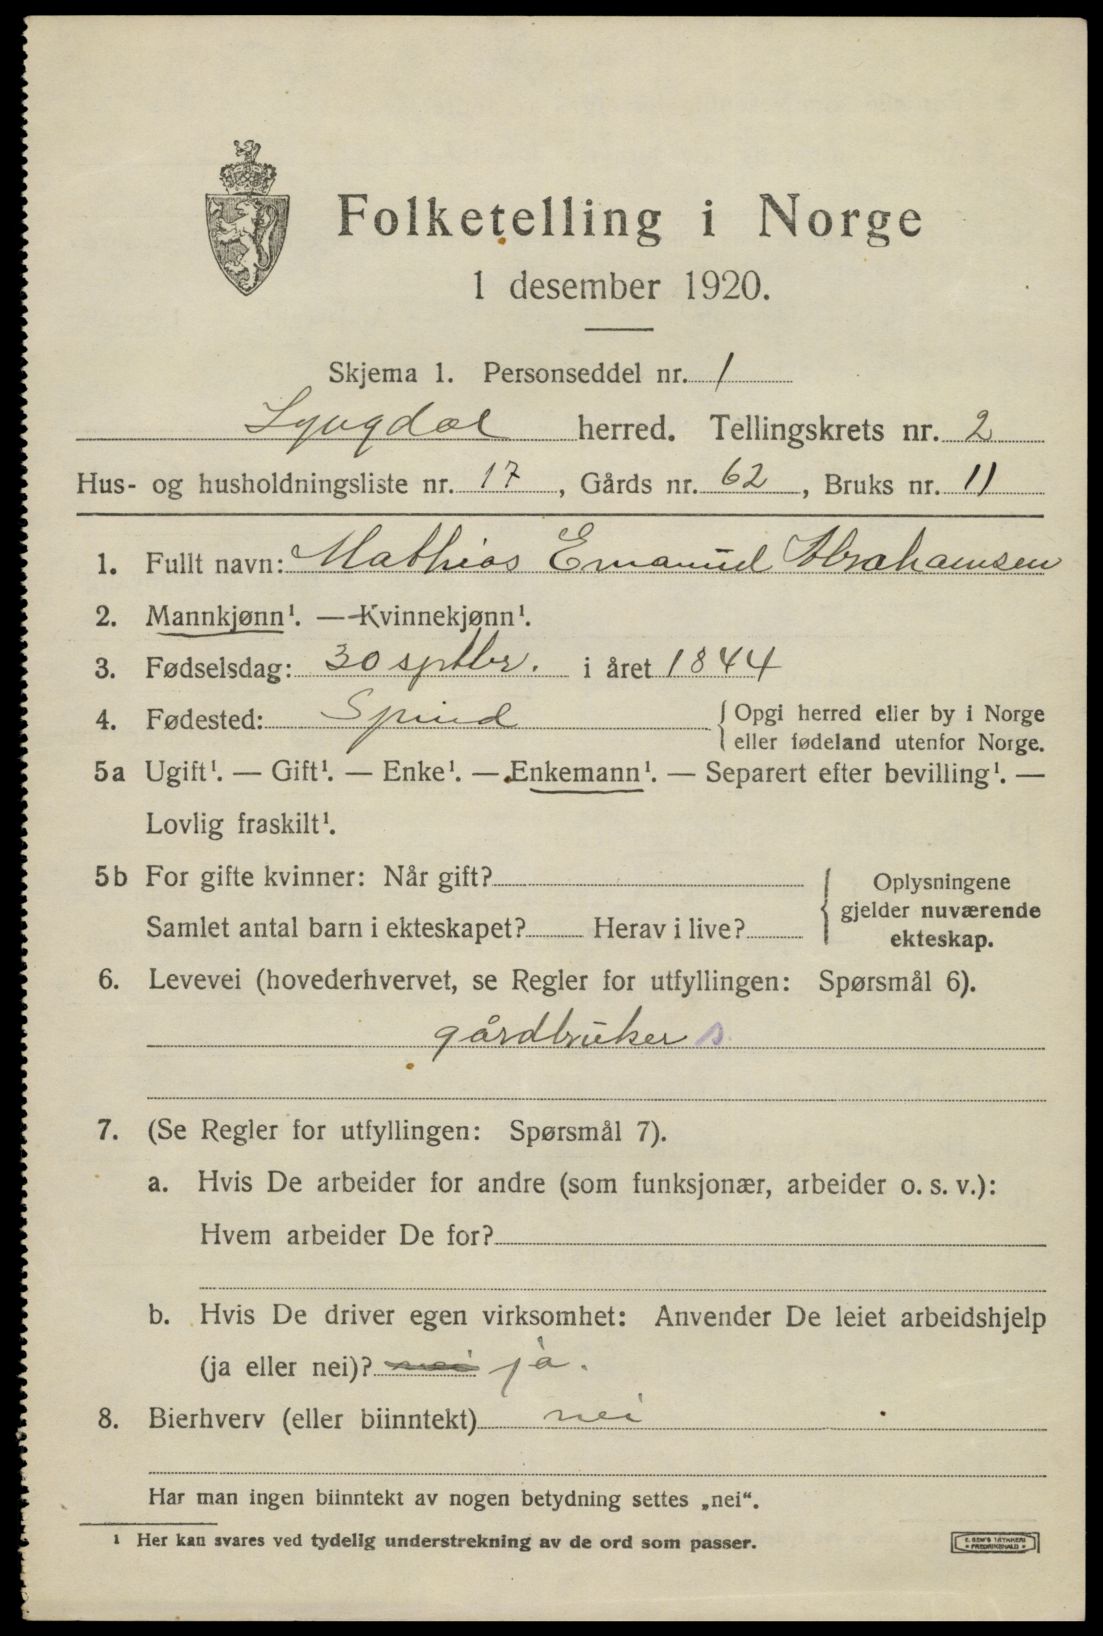 Folketelling i Norge
1 desember 1920.
Skjema 1. Personseddel nr. 1
Lyngdal herred. Tellingskrets nr. 2
Hus- og husholdningsliste nr. 17, Gårds nr. 62, Bruks nr. 11
1. Fullt navn: Mathias Emanuel Abrahamsen
2. Mannkjønn¹. — Kvinnekjønn¹.
3. Fødselsdag: 30 sptbr. i året 1844
4. Fødested: Spind { Opgi herred eller by i Norge
eller fødeland utenfor Norge.
5a Ugift¹. — Gift¹. — Enke¹. — Enkemann¹. — Separert efter bevilling¹. —
Lovlig fraskilt¹.
5b For gifte kvinner: Når gift?
Samlet antal barn i ekteskapet? Herav i live?
Oplysningene
gjelder nuværende
ekteskap.
6. Levevei (hovederhvervet, se Regler for utfyllingen: Spørsmål 6).
gårdbruker s
7. (Se Regler for utfyllingen: Spørsmål 7).
a. Hvis De arbeider for andre (som funksjonær, arbeider o. s. v.):
Hvem arbeider De for?
b. Hvis De driver egen virksomhet: Anvender De leiet arbeidshjelp
(ja eller nei)? nei ja.
8. Bierhverv (eller biinntekt) nei
Har man ingen biinntekt av nogen betydning settes „nei“.
¹ Her kan svares ved tydelig understrekning av de ord som passer.
E. SEM'S TRYKKERI
• FREDRIKSHALD •